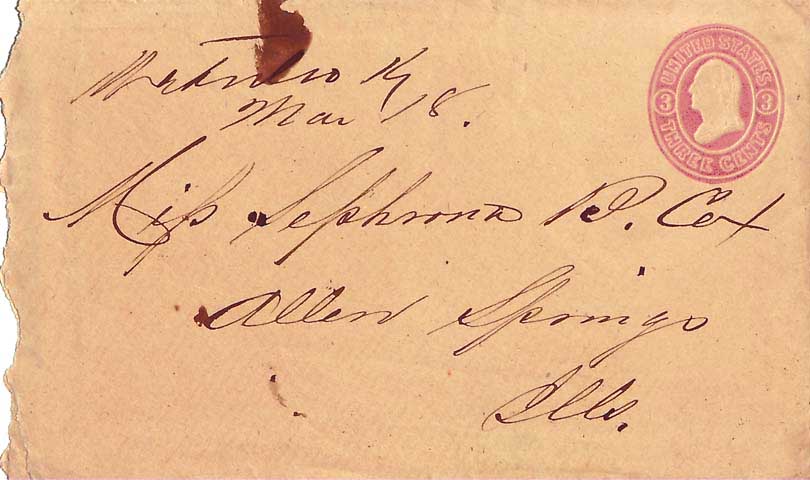 UNITED STATES
3 3
THREE CENTS
Ky
Mar 18.
Miss Sephrona B. Cox
Allen Springs
Ills.